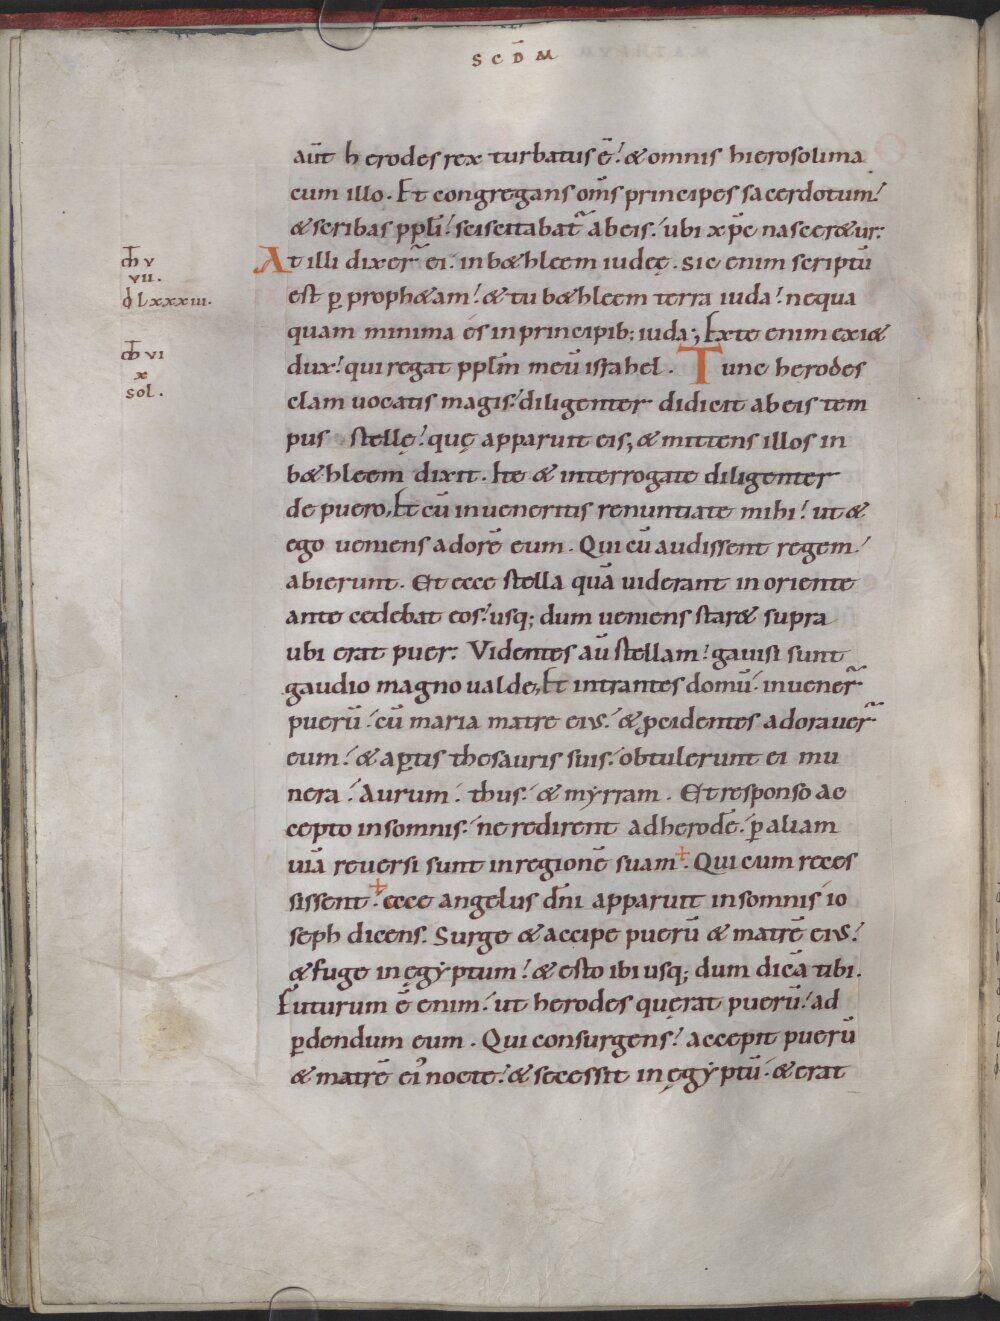 SCD̄M
aūt herodes rex turbatus ē. & omnis hierosolima
cum illo. Et congregans om̄s principes sacerdotum.
& scribas ppl̄i. sciscitabat̄ ab eis. ubi xp̄c nascer&ur.
At illi dixer̄ ei. in b&hleem iudeę. Sic enim scriptū
m̄ v
vii.
est ꝑ proph&am. & tu b&hleem terra iuda. nequa
l xxxiii.
quam minima es in principib; iuda; Ex te enim exi&
m̄ vi
dux. qui regat ppl̄m meū israhel. Tunc herodes
x
clam uocatis magis. diligenter didicit ab eis tem
sol.
pus stellę. quę apparuit eis; & mittens illos in
b&hleem dixit. Ite & interrogate diligenter
de puero, Et cū inueneritis renuntiate mihi. ut &
ego ueniens adorē eum. Qui cū audissent regem.
abierunt. Et ecce stella quā uiderant in oriente
antecedebat eos. usq; dum ueniens star& supra
ubi erat puer. Videntes aū stellam. gauisi sunt
gaudio magno ualde, Et intrantes domū. inuener̄
puerū. cū maria matre eius. & ꝓcidentes adorauer̄
eum. & aꝑtis thesauris suis. obtulerunt ei mu
nera. Aurum. thus. & myrram. Et responso ac
cepto in somnis. ne redirent ad herodē. ꝑ aliam
uiā reuersi sunt in regionē suam. Qui cum reces
sissent. ecce angelus dn̄i apparuit in somnis io
seph dicens. Surge & accipe puerū & matrē eius.
& fuge in ęgẏptum. & esto ibi usq; dum dicā tibi.
Futurum ē enim. ut herodes quęrat puerū. ad
ꝑdendum eum. Qui consurgens. accepit puerū
& matrē ei᾿ nocte. & secessit in ęgẏptū. & erat